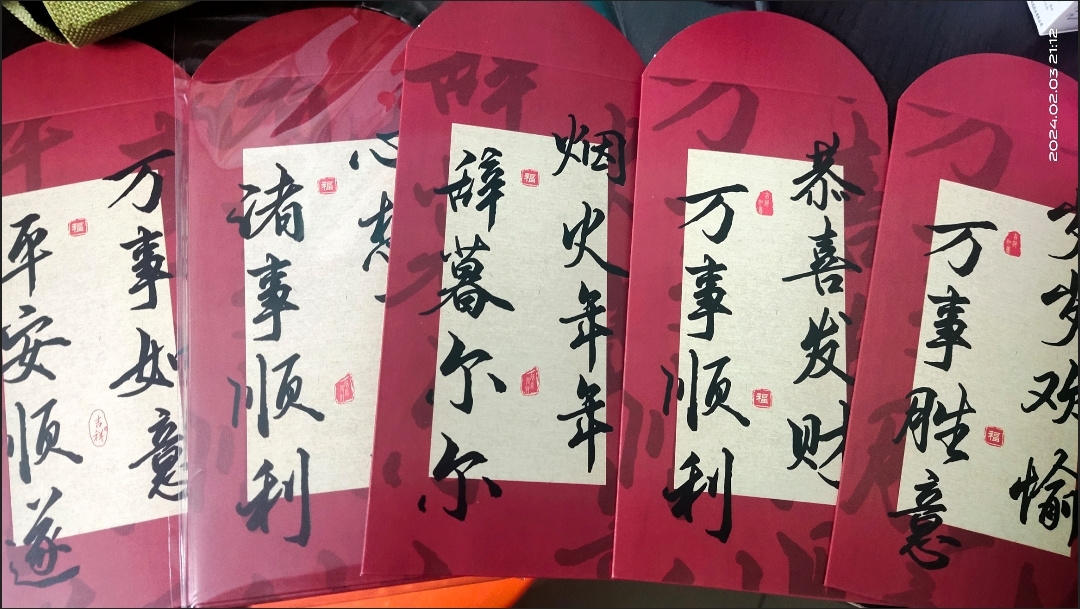 万事如意
平安顺遂
福
吉祥
心想
诸事顺利
福
烟火年年
辞暮尔尔
福
恭喜发财
万事顺利
福
岁岁欢愉
万事胜意
福
2024.02.03 21:12